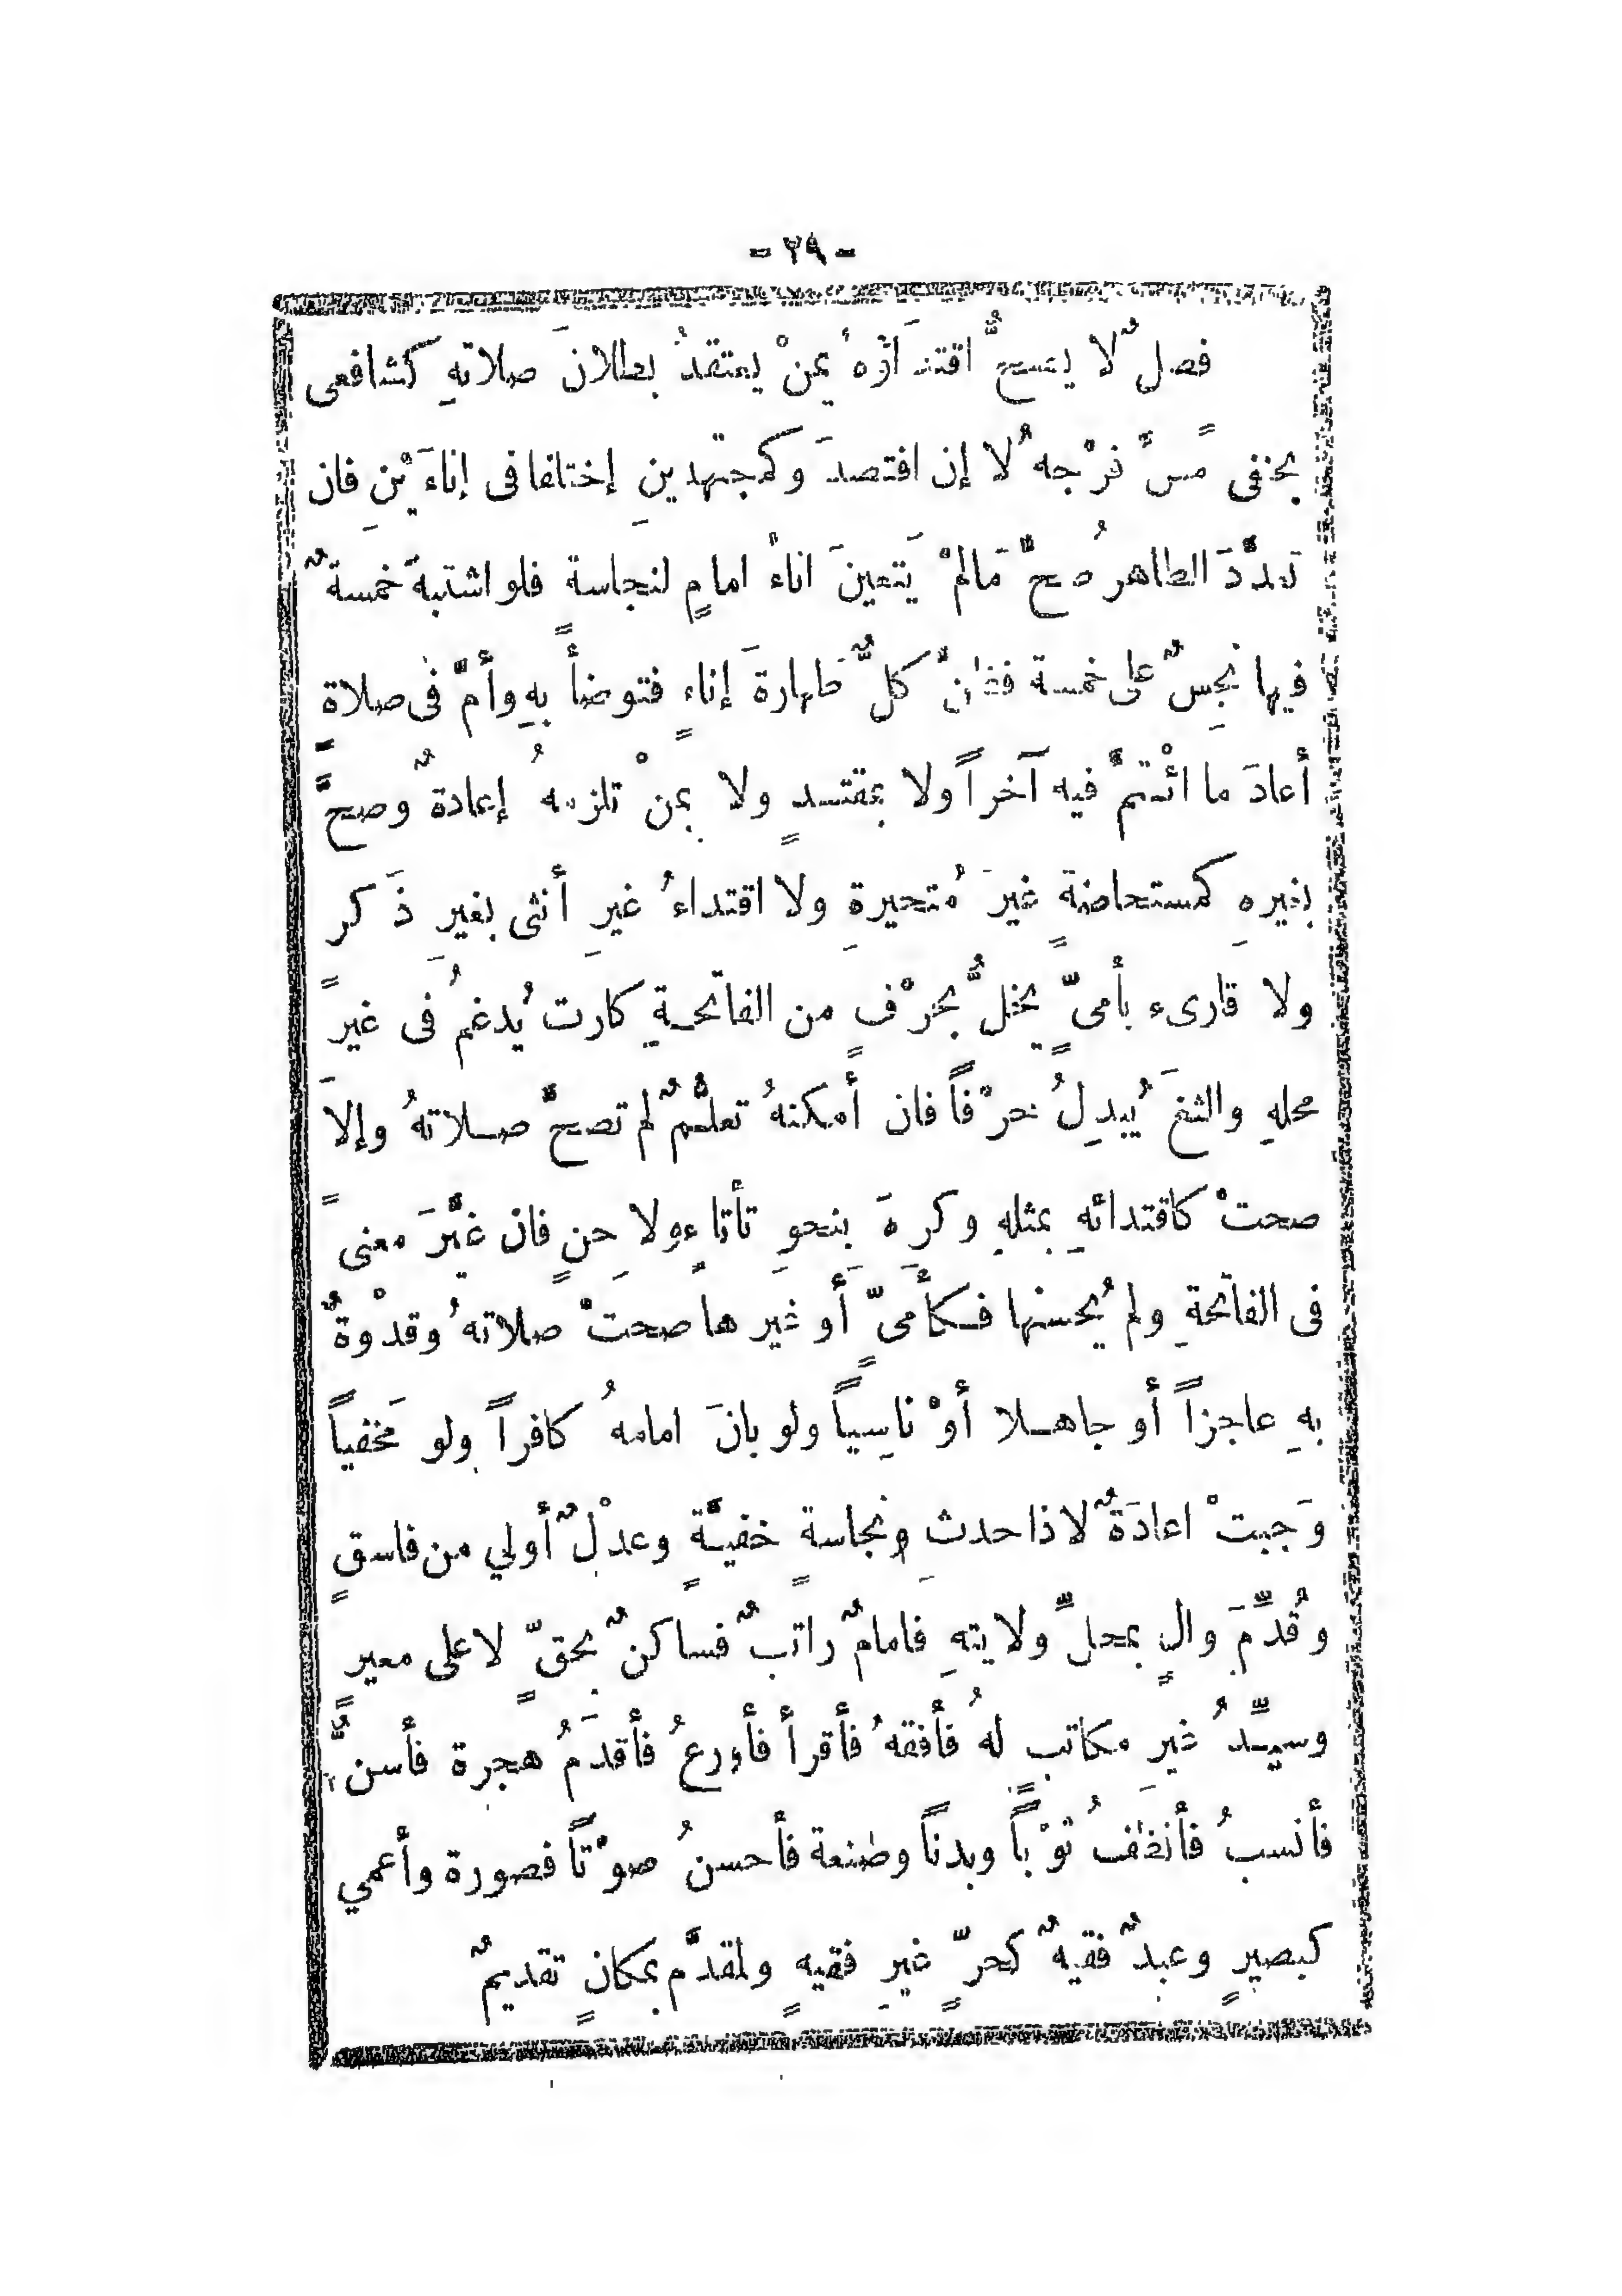 - ٢٩ -
فصلٌ لا يصحُّ اقتدَاؤُهُ بمنْ يعتقدُ بطلانَ صلاتهِ كشافعى
بحنفى مسَّ فرْجهُ لا إن افتصدَ وكمجتهدينِ إختلفا فى إناءَيْنِ فان
تعدَّدَ الطاهرُ صحَّ مَالمْ يَتعينَ اناءُ امامٍ لنجاسةٍ فلو اشتبهَ خمسةٌ
فيها نجِسٌ على خمسة فظنَّ كلٌّ طهارةَ إناءٍ فتوضأَ بهِ وأمَّ فى صلاةٍ
أعادَ ما ائْتمَّ فيه آخراً ولا بمقتدٍ ولا بمنْ تلزمهُ إعادةٌ وصحَّ
بغيرهِ كمستحاضةٍ غيرَ مُتحيرةِ ولا اقتداءُ غيرِ أنثى بغيرِ ذَكر
ولا قارىء بأمىٍّ يخلُّ بحرْفٍ من الفاتحـةِ كارت يُدغمُ فى غير
محلهِ والثغَ يُبدِلُ حرْفاً فان أمكنهُ تعلـُّمٌ لم تصحَّ صـلاتهُ وإلاَ
صحتْ كاقتدائهِ بمثلهِ وكرهَ بنحوِ تأتاءٍ ولاحِنٍ فان غيَّرَ معنىً
فى الفاتحةِ ولم يُحسنها فـكأمىٍّ أو غيرها صحتْ صلاتهُ وقدْوةٌ
بهِ عاجزاً أو جاهـلا أوْ ناسِياً ولو بانَ امامهُ كافراً ولو مَخفياً
وَجبتْ اعادَةٌ لا ذا حدث ونجاسةٍ خفيـَّةٍ وعدْلٌ أولي من فاسقٍ
وقُدِّمَ والٍ بمحلِّ ولايتهِ فامامٌ راتبٌ فساكنٌ بحقٍّ لا على معير
وسيـِّدُ غيرِ مكاتبٍ لهُ فأفقهُ فأقرأ فأورعُ فأقدَمُ هجرة فأسنُّ
فأنسبُ فأنظفُ ثوْباً وبدناً وصنعة فأحسنُ صوْتاً فصورة وأعمي
كبصيرٍ وعبدٌ فقيهٌ كحرٍّ غيرِ فقيهٍ ولمقدَّم بمكانٍ تقديمٌ